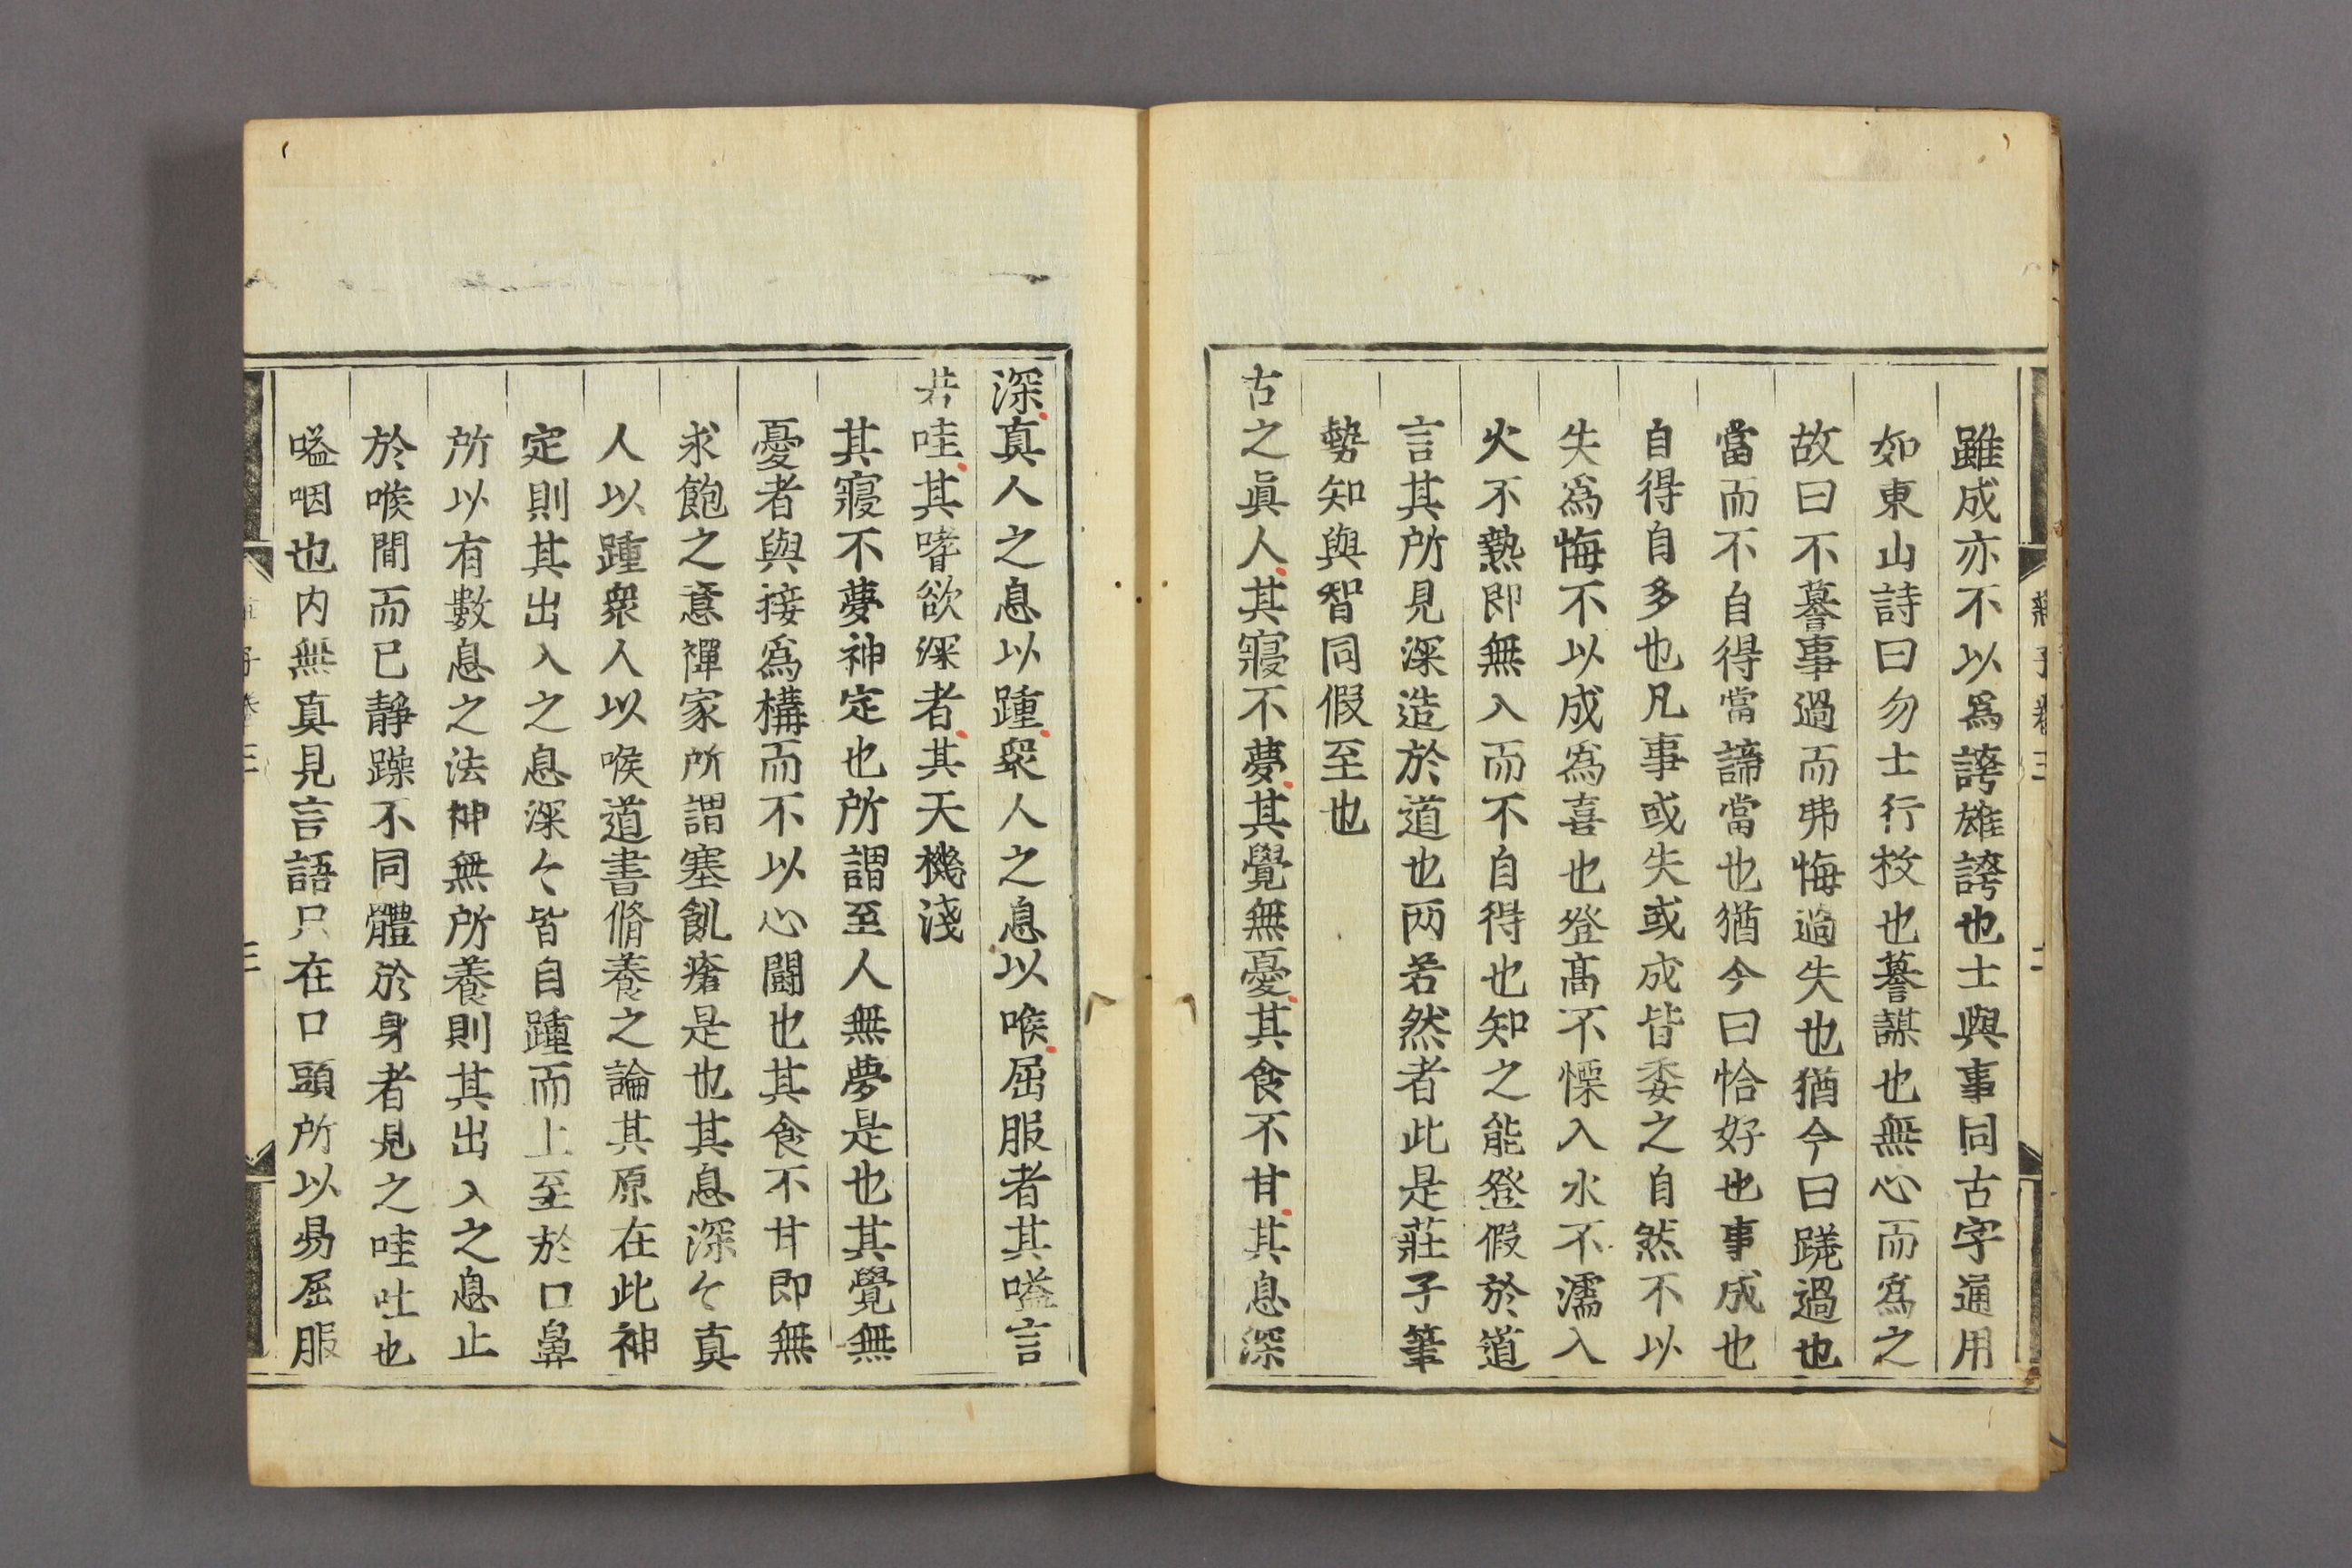 雖成亦不以爲誇雄誇也士與事同古字通用
如東山詩曰勿士行枚也謩謀也無心而爲之
故曰不謩事過而弗悔過失也猶今曰蹉過也
當而不自得當諦當也猶今曰恰好也事成也
自得自多也凡事或失或成皆委之自然不以
失爲悔不以成爲喜也登髙不慄入水不濡入
火不熱即無入而不自得也知之能登假於道
言其所見深造於道也两若然者此是莊子筆
勢知與智同假至也
古之眞人其寢不夢其覺無憂其食不甘其息深
深真人之息以踵衆人之息以喉屈服者其嗌言
若哇其嗜欲深者其天機淺
其寢不夢神定也所謂至人無夢是也其覺無
憂者與接爲構而不以心鬪也其食不甘即無
求飽之意禪家所謂塞飢瘡是也其息深々真
人以踵衆人以喉道書脩養之論其原在此神
定則其出入之息深々皆自踵而上至於口鼻
所以有數息之法神無所養則其出入之息止
於喉間而已靜躁不同體於身者見之哇吐也
嗌咽也内無真見言語只在口頭所以易屈服